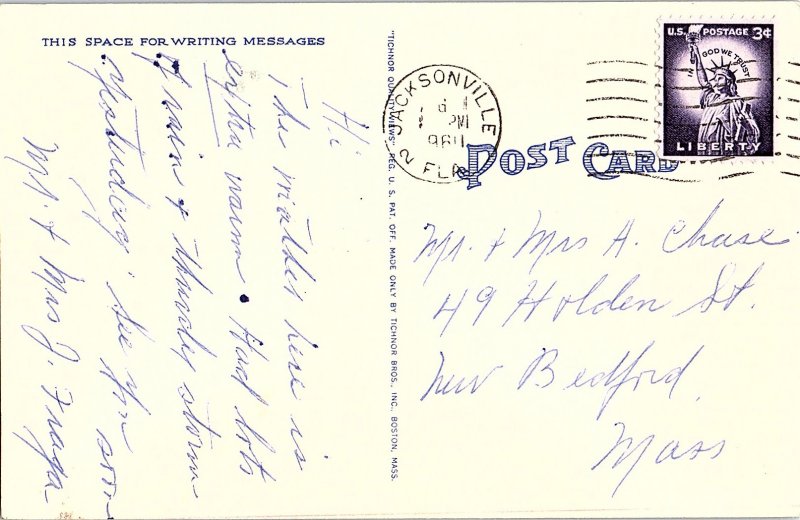 THIS SPACE FOR WRITING MESSAGES
Hi
The weather here is
extra warm. Had lots
of rain & thunder storm
yesterday. See you soon
Mr. & Mrs J. Fraga
"TICHNOR QUALITY VIEWS" REG. U. S. PAT. OFF. MADE ONLY BY TICHNOR BROS., INC., BOSTON, MASS.
JACKSONVILLE
PM
2 FLA
U.S. POSTAGE 3¢
IN GOD WE TRUST
LIBERTY
POST CARD
Mr. & Mrs A. Chase
49 Holden St.
New Bedford,
Mass